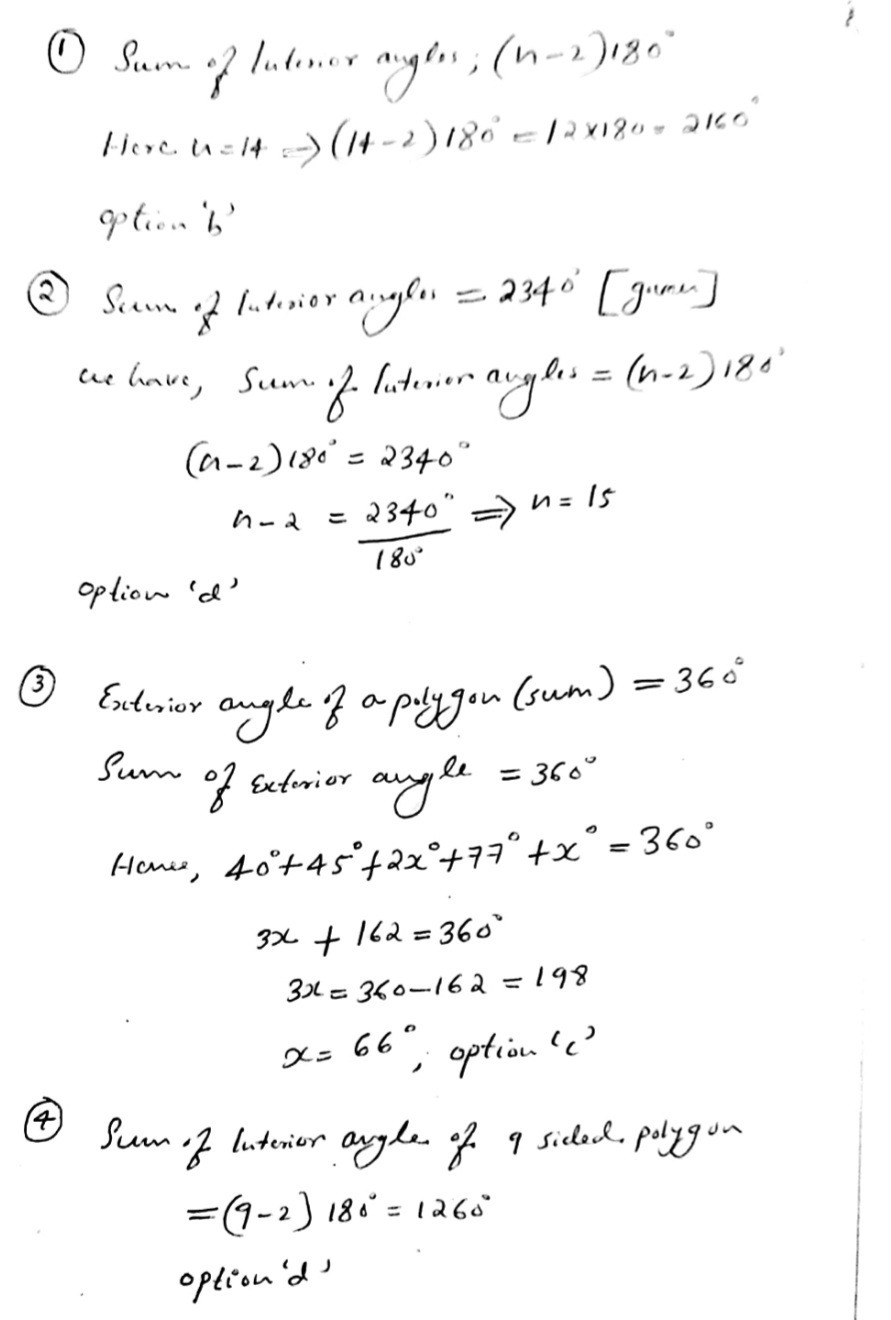 ① Sum of Interior angles; (n-2)180°
Here n=14 ⇒ (14-2)180° = 12×180 = 2160°
option 'b'
② Sum of Interior angles = 2340° [given]
we have, Sum of Interior angles = (n-2)180°
(n-2)180° = 2340°
n-2 = 2340°/180° ⇒ n=15
option 'd'
③ Exterior angle of a polygon (sum) = 360°
Sum of Exterior angle = 360°
Hence, 40°+45°+2x°+77°+x° = 360°
3x + 162 = 360°
3x = 360-162 = 198
x = 66°, option 'c'
④ Sum of Interior angle of 9 sided polygon
=(9-2) 180° = 1260°
option 'd'